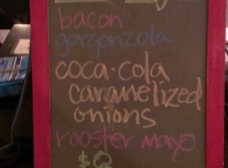 bacon
gorgonzola
coca-cola
caramelized
onions
rooster mayo
$8